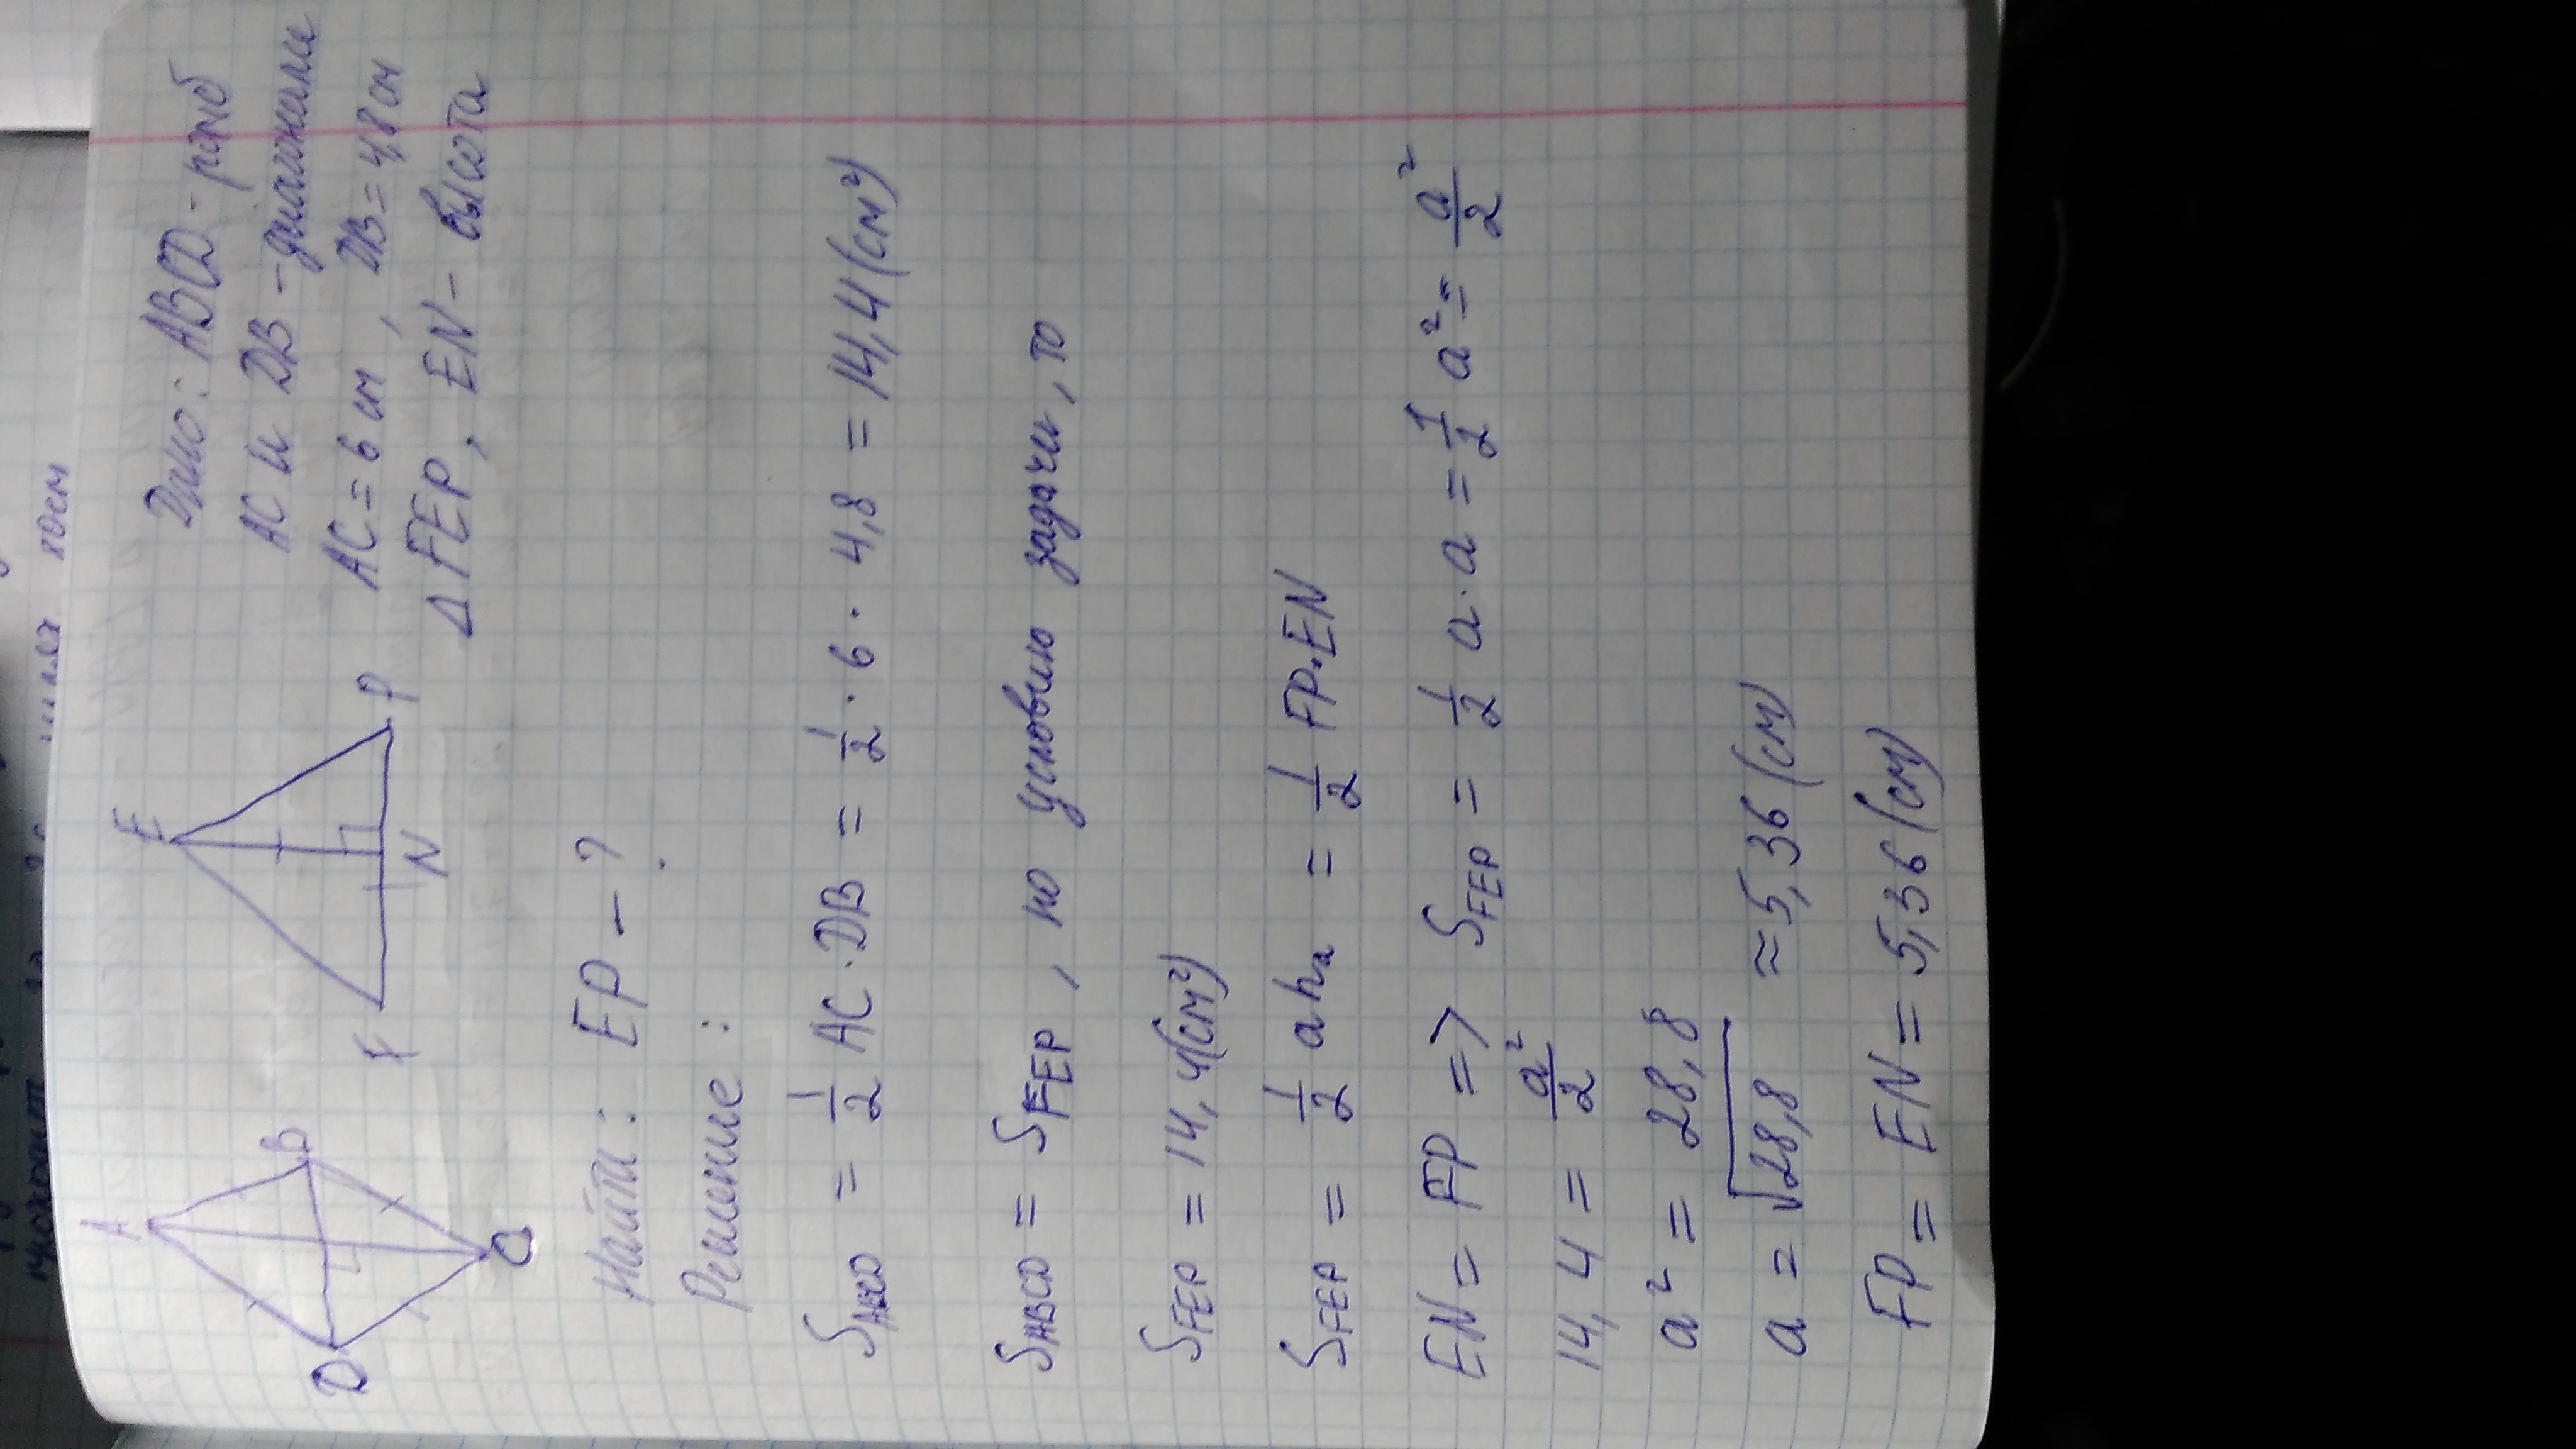 юсм
A
D
B
C
E
F
N
P
Дано: ABCD - ромб
AC и DB - диагонали
AC = 6 см, DB = 4,8 см
Δ FEP, EN - высота
Найти: EP - ?
Решение:
S_ABCD = 1/2 AC · DB = 1/2 · 6 · 4,8 = 14,4 (см²)
S_ABCD = S_FEP, по условию задачи, то
S_FEP = 14,4 (см²)
S_FEP = 1/2 a hₐ = 1/2 FP · EN
EN = FP => S_FEP = 1/2 a · a = 1/2 a² = a²/2
14,4 = a²/2
a² = 28,8
a = √28,8 ≈ 5,36 (см)
FP = EN = 5,36 (см)